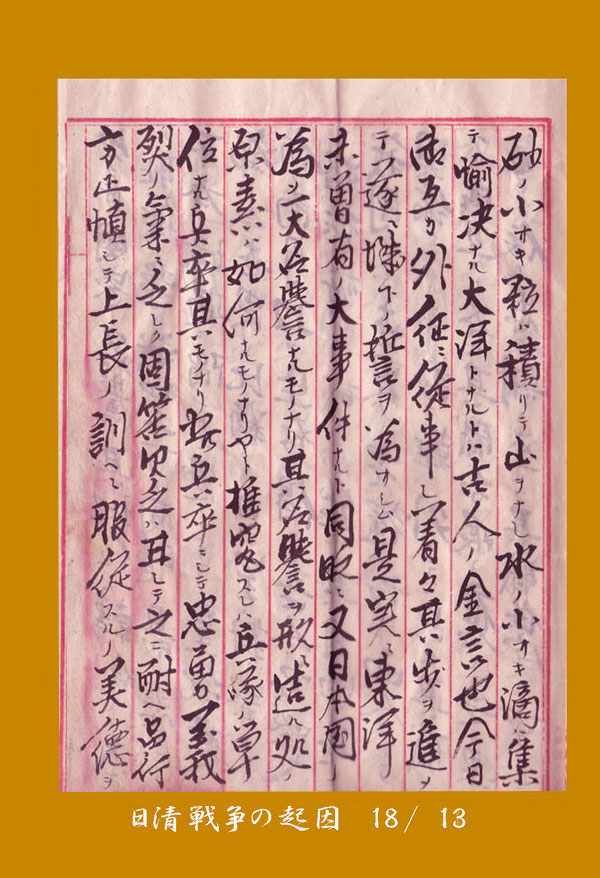 砂ノ小サキ顆ハ積リテ山ヲナシ水ノ小サキ滴ハ集
テ愉决ナル大洋トナルトハ古人ノ金言也今日
御互カ外征ニ従事シ着々其歩ヲ進メ
テ遂ニ城下ノ誓ヲ為サシム是実ニ東洋
未曽有ノ大事件ナルト同時ニ又日本国ノ
為メ一大名誉ナルモノナリ其名誉ヲ形造ル処ノ
原素ハ如何ナルモノナリヤト推究スレハ兵隊ノ単
位ナル兵卒其モノナリ兵卒ニシテ忠勇義
烈ノ氣ニ乏シク困苦欠乏ハ甘シテ之ニ耐ヘ品行
方正ニシテ上長ノ訓ヘニ服従スルノ美徳ヲ
日清戦争の起因 18/ 13